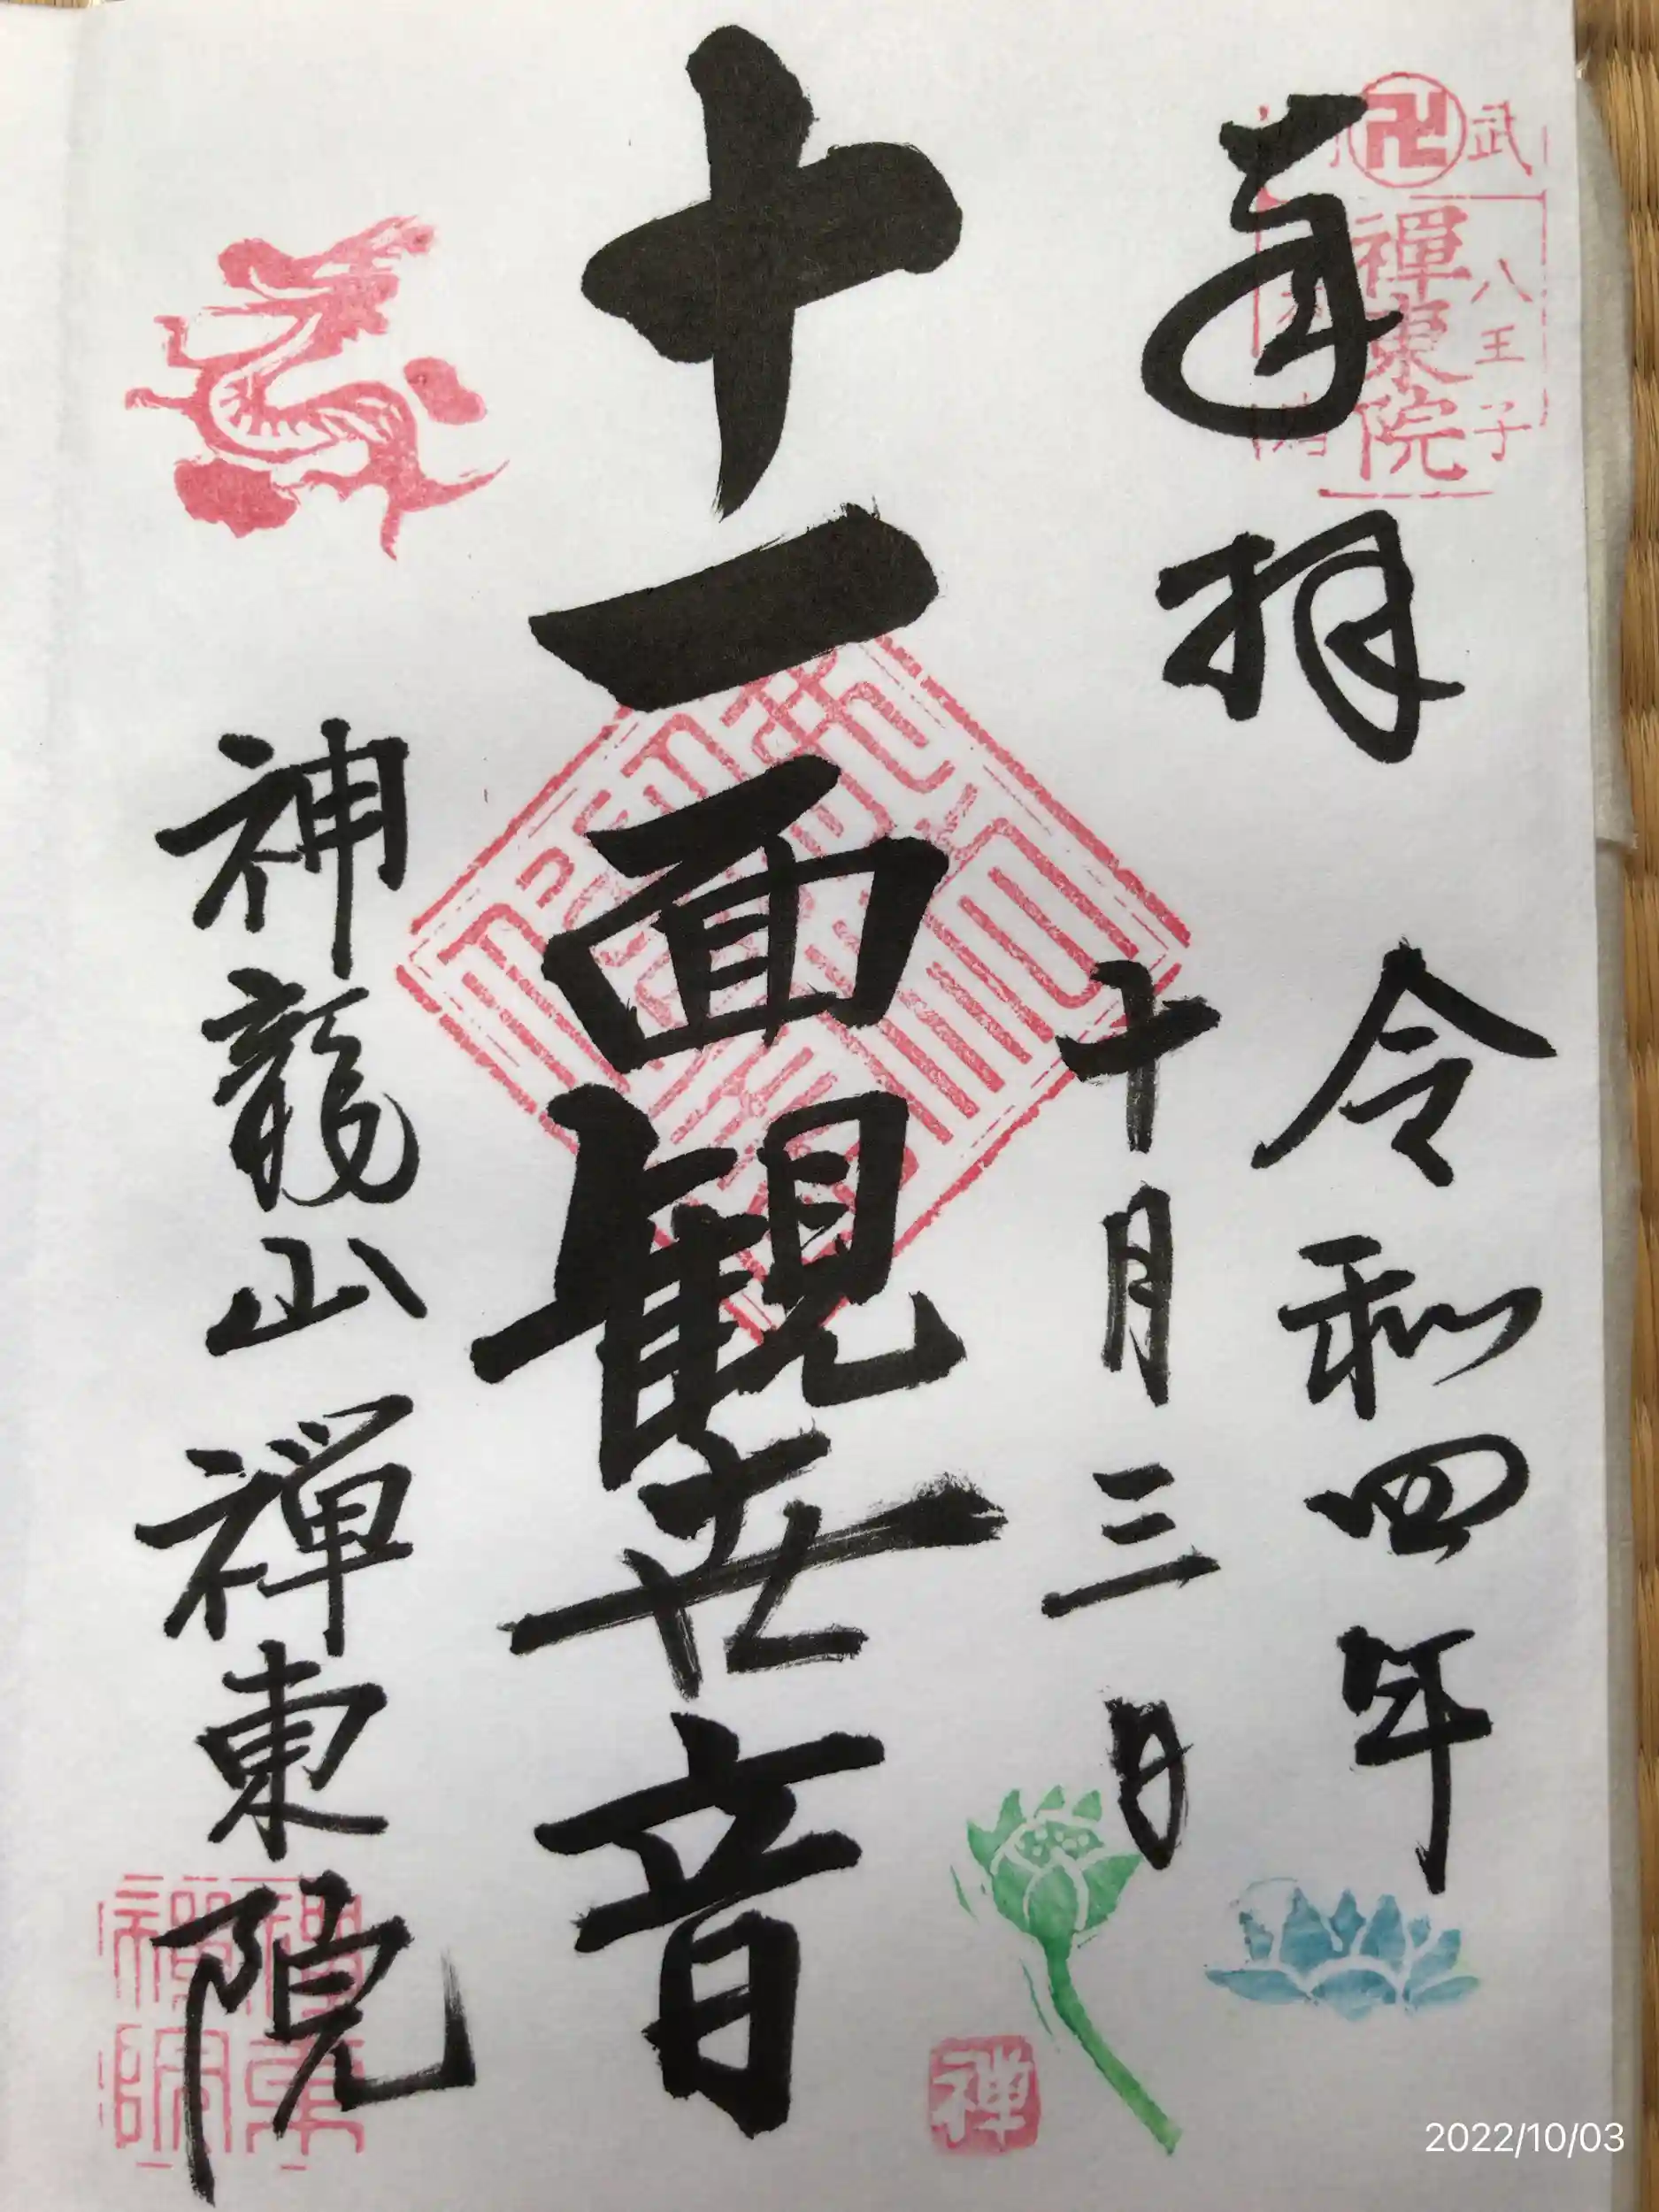 奉拝
武
八王子
禅東院
令和四年
十月三日
十一面観世音
神龍山禅東院
禅
2022/10/03